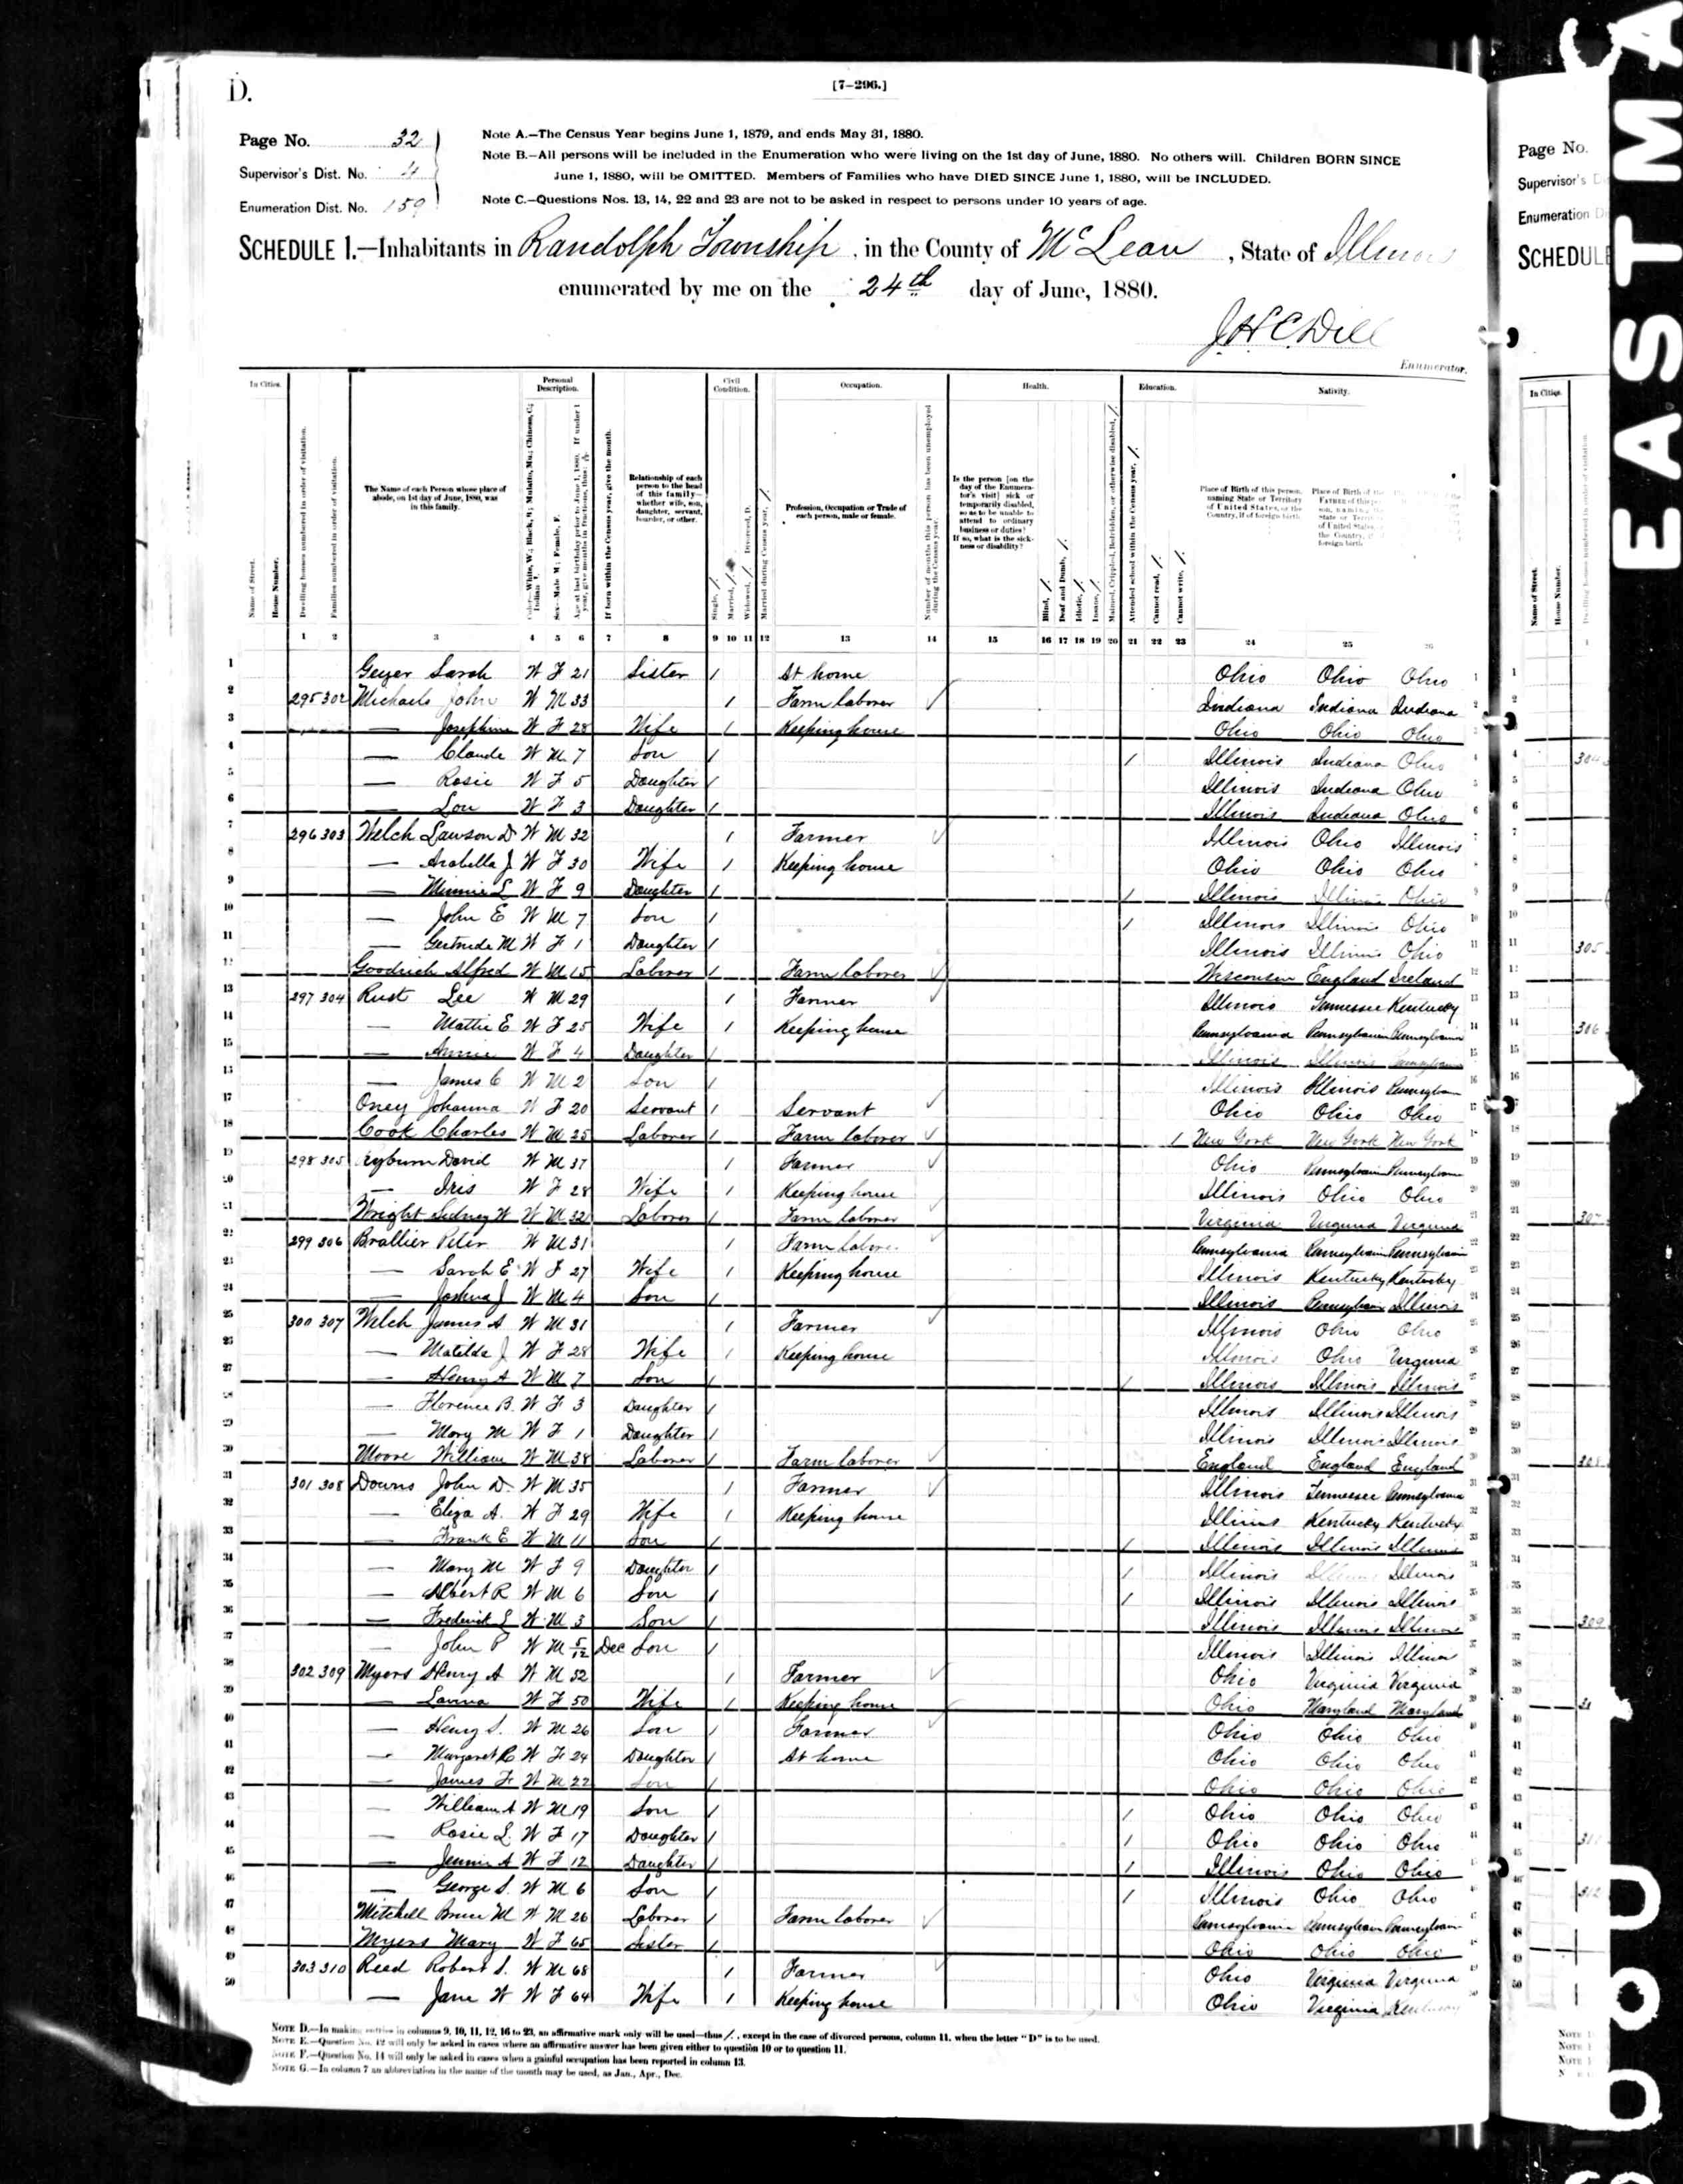 D.
[7-296.]
Page No. 32
Supervisor's Dist. No. 4
Enumeration Dist. No. 159
Note A.—The Census Year begins June 1, 1879, and ends May 31, 1880.
Note B.—All persons will be included in the Enumeration who were living on the 1st day of June, 1880. No others will. Children BORN SINCE
June 1, 1880, will be OMITTED. Members of Families who have DIED SINCE June 1, 1880, will be INCLUDED.
Note C.—Questions Nos. 13, 14, 22 and 23 are not to be asked in respect to persons under 10 years of age.
SCHEDULE 1.—Inhabitants in Randolph Township, in the County of McLean, State of Illinois
enumerated by me on the 24th day of June, 1880.
J.H.C. Dill
Enumerator.
In Cities. Personal Description. Civil Condition. Occupation. Health. Education. Nativity.
Name of Street. House Number. Dwelling houses numbered in order of visitation. Families numbered in order of visitation.
The Name of each Person whose place of abode, on 1st day of June, 1880, was in this family.
Relationship of each person to the head of this family—whether wife, son, daughter, servant, boarder, or other.
Profession, Occupation or Trade of each person, male or female.
Is the person [on the day of the Enumerator's visit] sick or temporarily disabled, so as to be unable to attend to ordinary business or duties? If so, what is the sickness or disability?
Place of Birth of this person, naming State or Territory of United States, or the Country, if of foreign birth.
1 2 3 4 5 6 7 8 9 10 11 12 13 14 15 16 17 18 19 20 21 22 23 24 25 26
1 Geyer Sarah W F 21 Sister / At home Ohio Ohio Ohio
2 295 302 Michaels John W M 33 / Farm laborer Indiana Indiana Indiana
3 — Josephine W F 28 Wife / Keeping house Ohio Ohio Ohio
4 — Claude W M 7 Son / / Illinois Indiana Ohio
5 — Rosie W F 5 Daughter / Illinois Indiana Ohio
6 — Lou W F 3 Daughter / Illinois Indiana Ohio
7 296 303 Welch Lawson D W M 32 / Farmer Illinois Ohio Illinois
8 — Arabella J W F 30 Wife / Keeping house Ohio Ohio Ohio
9 — Minnie L W F 9 Daughter / / Illinois Illinois Ohio
10 — John E W M 7 Son / / Illinois Illinois Ohio
11 — Gertrude M W F 1 Daughter / Illinois Illinois Ohio
12 Goodrich Alfred W M 15 Laborer / Farm laborer Wisconsin England Ireland
13 297 304 Rust Lee W M 29 / Farmer Illinois Tennessee Kentucky
14 — Mattie E W F 25 Wife / Keeping house Pennsylvania Pennsylvania Pennsylvania
15 — Annie W F 4 Daughter / Illinois Illinois Pennsylvania
16 — James C W M 2 Son / Illinois Illinois Pennsylvan
17 Oney Johanna W F 20 Servant / Servant Ohio Ohio Ohio
18 Cook Charles W M 25 Laborer / Farm laborer / New York New York New York
19 298 305 Rayburn David W M 37 / Farmer Ohio Pennsylvania Pennsylvania
20 — Iris W F 28 Wife / Keeping house Illinois Ohio Ohio
21 Wright Sidney W W M 32 Laborer / Farm laborer Virginia Virginia Virginia
22 299 306 Brallier Peter W M 31 / Farm laborer Pennsylvania Pennsylvania Pennsylvania
23 — Sarah E W F 27 Wife / Keeping house Illinois Kentucky Kentucky
24 — Joshua J W M 4 Son / Illinois Pennsylvania Illinois
25 300 307 Welch James A W M 31 / Farmer Illinois Ohio Ohio
26 — Matilda J W F 28 Wife / Keeping house Illinois Ohio Virginia
27 — Henry A W M 7 Son / / Illinois Illinois Illinois
28 — Florence B. W F 3 Daughter / Illinois Illinois Illinois
29 — Mary M W F 1 Daughter / Illinois Illinois Illinois
30 Moore William W M 38 Laborer / Farm laborer England England England
31 301 308 Downs John D. W M 35 / Farmer Illinois Tennessee Pennsylvania
32 — Eliza A. W F 29 Wife / Keeping house Illinois Kentucky Kentucky
33 — Frank E W M 11 Son / / Illinois Illinois Illinois
34 — Mary M W F 9 Daughter / / Illinois Illinois Illinois
35 — Albert R W M 6 Son / / Illinois Illinois Illinois
36 — Frederick L W M 3 Son / Illinois Illinois Illinois
37 — John P W M 5/12 Dec Son / Illinois Illinois Illinois
38 302 309 Myers Henry A W M 52 / Farmer Ohio Virginia Virginia
39 — Lavina W F 50 Wife / Keeping house Ohio Maryland Maryland
40 — Henry S. W M 26 Son / Farmer Ohio Ohio Ohio
41 — Margaret R W F 24 Daughter / At home Ohio Ohio Ohio
42 — James F W M 22 Son / Ohio Ohio Ohio
43 — William A W M 19 Son / / Ohio Ohio Ohio
44 — Rosie L. W F 17 Daughter / / Ohio Ohio Ohio
45 — Jennie A W F 12 Daughter / / Illinois Ohio Ohio
46 — George S. W M 6 Son / / Illinois Ohio Ohio
47 Mitchell Bruce M W M 26 Laborer / Farm laborer Pennsylvania Pennsylvania Pennsylvania
48 Myers Mary W F 65 Sister / Ohio Ohio Ohio
49 303 310 Reed Robert S. W M 68 / Farmer Ohio Virginia Virginia
50 — Jane W W F 64 Wife / Keeping house Ohio Virginia Kentucky
NOTE D.—In making entries in columns 9, 10, 11, 12, 16 to 23, an affirmative mark only will be used—thus /, except in the case of divorced persons, column 11, when the letter "D" is to be used.
NOTE E.—Question No. 12 will only be asked in cases where an affirmative answer has been given either to question 10 or to question 11.
NOTE F.—Question No. 14 will only be asked in cases when a gainful occupation has been reported in column 13.
NOTE G.—In column 7 an abbreviation in the name of the month may be used, as Jan., Apr., Dec.
Page No.
Supervisor's
Enumeration
SCHEDULE
In Cities.
EASTMA